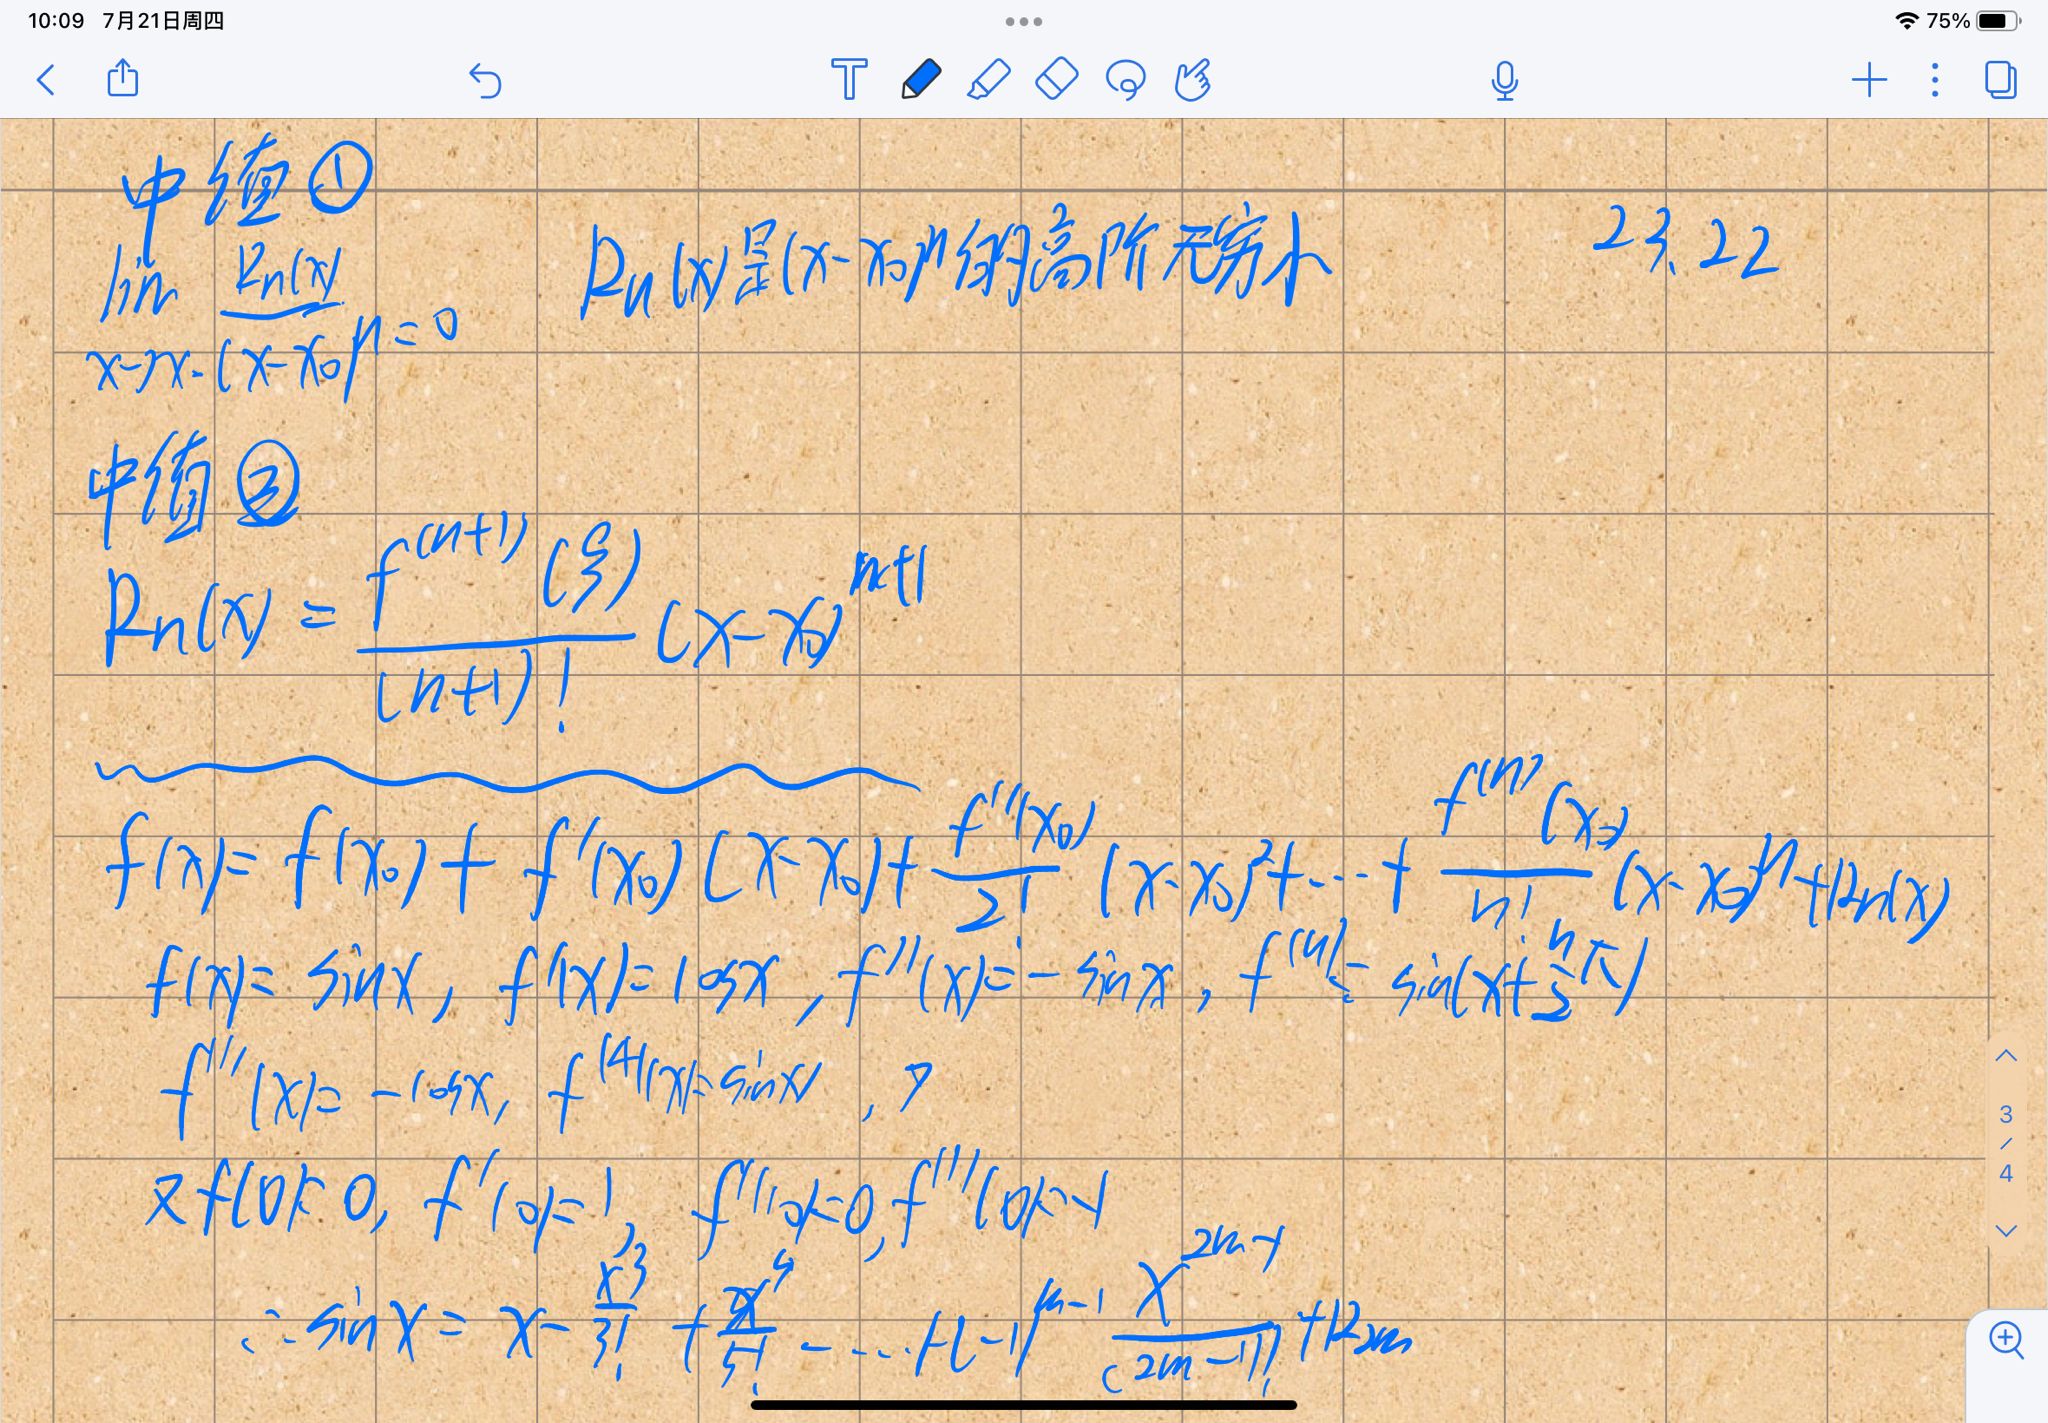 10:09 7月21日周四
75%
中值①
lim Rn(x)
x→x0 (x-x0)^n = 0
Rn(x)是(x-x0)^n的高阶无穷小
23.22
中值②
Rn(x) = f^(n+1)(ξ) / (n+1)! (x-x0)^n+1
f(x) = f(x0) + f'(x0)(x-x0) + f''(x0) / 2! (x-x0)^2 + … + f^(n)(x0) / n! (x-x0)^n + Rn(x)
f(x) = sinx, f'(x) = cosx, f''(x) = -sinx, f^(n) = sin(x + n/2 π)
f'''(x) = -cosx, f^(4)(x) = sinx,
又f(0) = 0, f'(0) = 1, f''(0) = 0, f'''(0) = -1
∴ sinx = x - x^3 / 3! + x^5 / 5! - … + (-1)^m-1 x^2m-1 / (2m-1)! + R2m
3
/
4